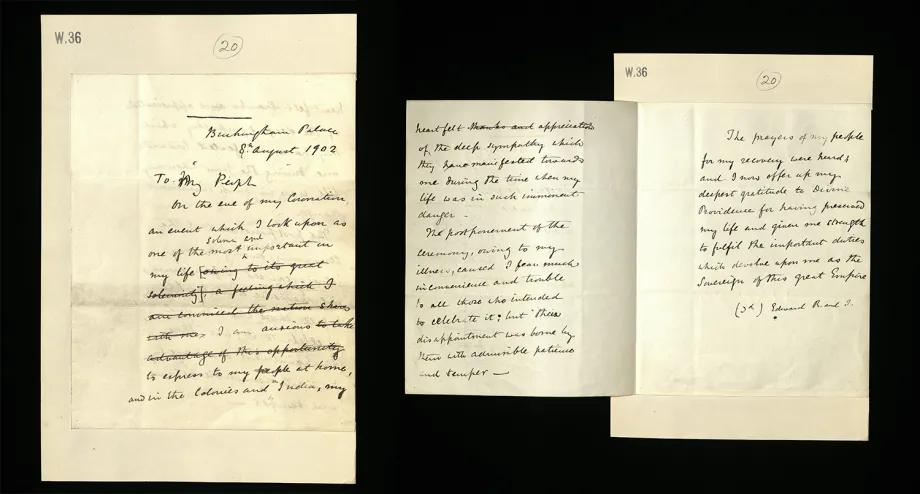 W.36
20
Buckingham Palace
8th August 1902
To My People
On the eve of my Coronation
an event which I look upon as
solemn and
one of the most important in
my life [owing to its great
solemnity], a feeling which I
am convinced the nation share
with me, I am anxious to take
advantage of this opportunity
to express to my people at home,
and in the Colonies and India, my
heartfelt thanks and appreciation
of the deep sympathy which
they have manifested towards
me during the time when my
life was in such imminent
danger.
The postponement of the
ceremony, owing to my
illness, caused I fear much
inconvenience and trouble
to all those who intended
to celebrate it; but their
disappointment was borne by
them with admirable patience
and temper —
W.36
20
The prayers of my people
for my recovery were heard &
and I now offer up my
deepest gratitude to Divine
Providence for having preserved
my life and given me strength
to fulfil the important duties
which devolve upon me as the
Sovereign of this great Empire
(sd) Edward R. and I.